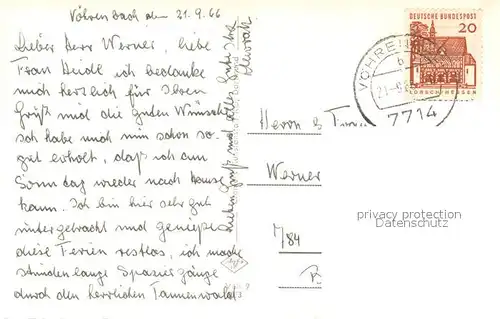 Vöhrenbach den 21.9.66
Lieber Herr Werner, liebe
Frau Heidl, ich bedanke
mich herzlich für Ihren
Gruß und die guten Wünsche
ich habe mich nun schon so
gut erholt, daß ich am
Sonntag wieder nach Hause
kann. Ich bin hier sehr gut
untergebracht und genieße
diese Ferien restlos, ich mache
stundenlange Spaziergänge
durch den herrlichen Tannenwald
lieben Gruß und alles Gute Ihre
DEUTSCHE BUNDESPOST
20
LORSCH/HESSEN
VÖHREN
b
21.-9.6
7714
Herrn & Frau
Werner
7/84
privacy protection
watermark